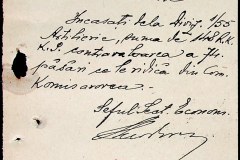 Incasati dela Diviz. 1/55
Artilerie, suma de
contravaloarea a 74
păsări ce le ridică din Com.
Komisarovca. —
Șeful Sect. Econom.